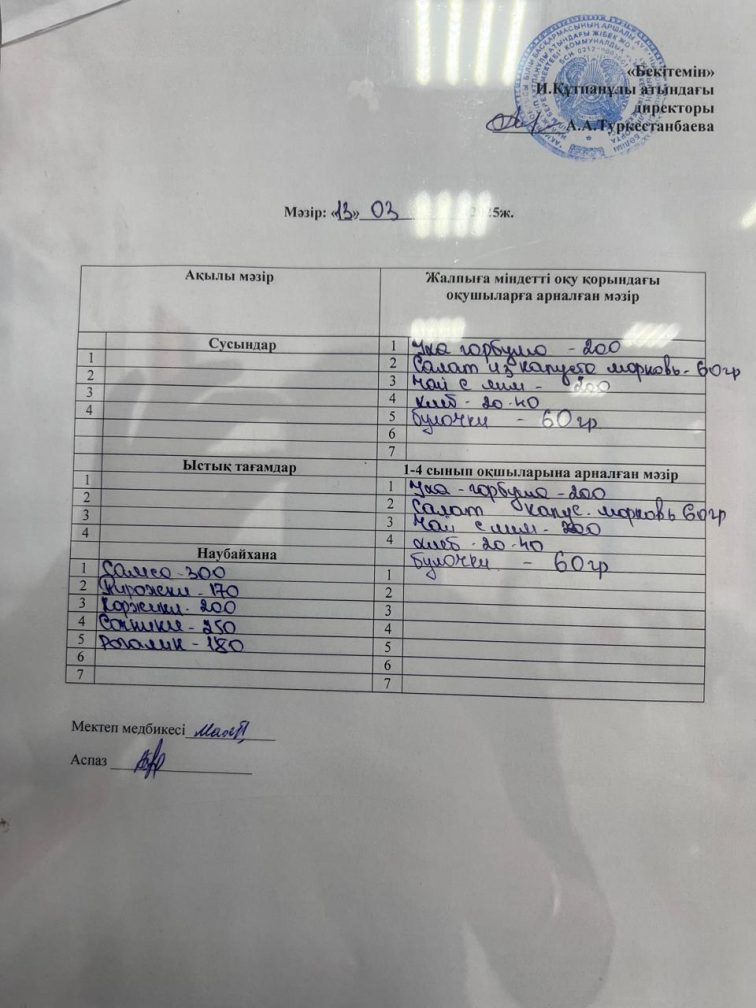 «Бекітемін»
И.Құтпанұлы атындағы
директоры
А.А.Туркестанбаева
Мәзір: «13» 03 25ж.
Ақылы мәзір
Жалпыға міндетті оқу қорындағы
оқушыларға арналған мәзір
Сусындар
1
2
3
4
1 Уха горбуша - 200
2 Салат из капусто морковь - 60гр
3 Чай с лим - 200
4 хлеб - 20-40
5 булочки - 60гр
6
7
Ыстық тағамдар
1
2
3
4
1-4 сынып оқшыларына арналған мәзір
1 Уха - горбуша - 200
2 Салат капус. морковь 60гр
3 Чай с лим - 200
4 хлеб - 20-40
булочки - 60гр
Наубайхана
1 Самса - 300
2 Пирожки - 170
3 Коржики - 200
4 Сочники - 250
5 Рогалик - 180
6
7
1
2
3
4
5
6
7
Мектеп медбикесі
Аспаз